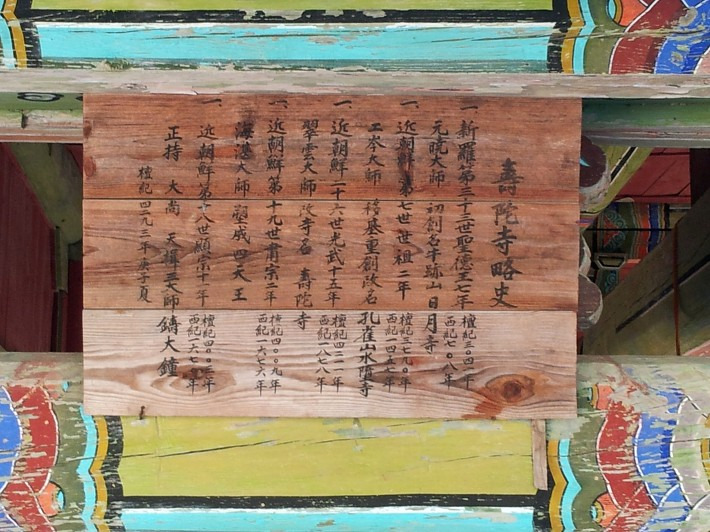 壽陀寺略史
一. 新羅第三十三世聖德王七年 檀紀三○四一年
西紀七○八年
元曉大師 初創名牛跡山日月寺
一. 近朝鮮第七世世祖二年 檀紀三七九○年
西紀一四五七年
工岑大師 移基重創改名 孔雀山水墮寺
一. 近朝鮮二十六世光武十五年 檀紀四二一一年
西紀一八七八年
翠雲大師 改寺名 壽陀寺
一. 近朝鮮第十九世肅宗二年 檀紀四○○九年
西紀一六七六年
大師 塑成四天王
一. 近朝鮮第十八世顯宗十一年 檀紀四○○三年
西紀一六七○年
正持 大尚 天 三大師 鑄大鐘
檀紀四二九三年庚子夏